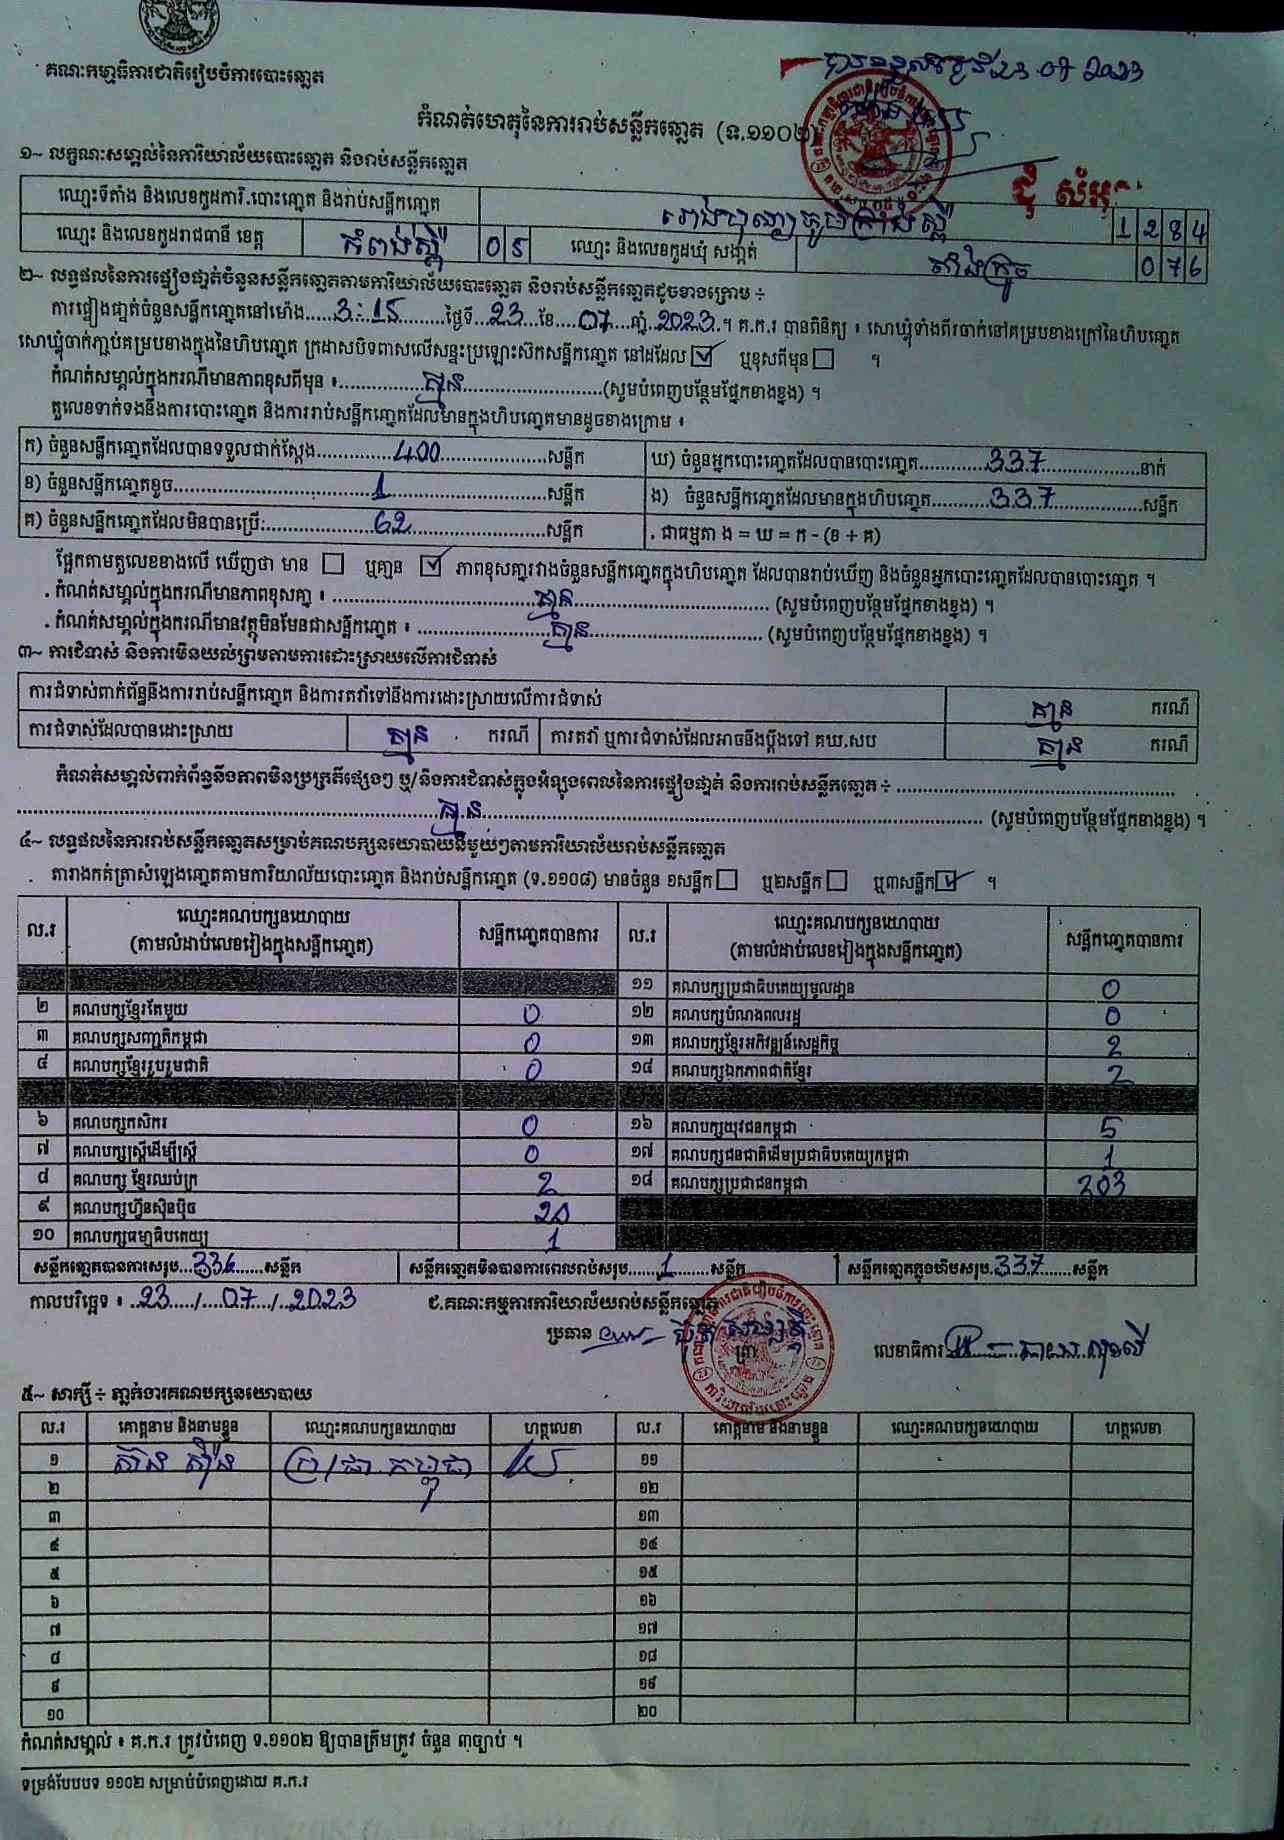 គណៈកម្មាធិការជាតិរៀបចំការបោះឆ្នោត
បានទទួលថ្ងៃទី23 07 2023
កំណត់ហេតុនៃការរាប់សន្លឹកឆ្នោត (ទ.១១០២)
១~ លក្ខណៈសម្គាល់នៃការិយាល័យបោះឆ្នោត និងរាប់សន្លឹកឆ្នោត
ជុំ សំអុ
ឈ្មោះទីតាំង និងលេខកូដការិ.បោះឆ្នោត និងរាប់សន្លឹកឆ្នោត 1 2 8 4
ឈ្មោះ និងលេខកូដរាជធានី ខេត្ត កំពង់ស្ពឺ 0 5 ឈ្មោះ និងលេខកូដឃុំ សង្កាត់ តាំងក្រូច 0 7 6
២~ លទ្ធផលនៃការផ្ទៀងផ្ទាត់ចំនួនសន្លឹកឆ្នោតតាមការិយាល័យបោះឆ្នោត និងរាប់សន្លឹកឆ្នោតដូចខាងក្រោម ÷
ការផ្ទៀងផ្ទាត់ចំនួនសន្លឹកឆ្នោតនៅម៉ោង 3:15 ថ្ងៃទី 23 ខែ 07 ឆ្នាំ 2023 ។ គ.ក.រ បានពិនិត្យ ៖ សោឃ្លុំទាំងពីរចាក់នៅគម្របខាងក្រៅនៃហិបឆ្នោត
សោឃ្លុំចាក់ភ្ជាប់គម្របខាងក្នុងនៃហិបឆ្នោត ក្រដាសបិទពាសលើសន្ទះប្រឡោះស៊កសន្លឹកឆ្នោត នៅដដែល ☑ ឬខុសពីមុន ☐ ។
កំណត់សម្គាល់ក្នុងករណីមានភាពខុសពីមុន ៖ គ្មាន (សូមបំពេញបន្ថែមផ្នែកខាងខ្នង) ។
តួលេខទាក់ទងនឹងការបោះឆ្នោត និងការរាប់សន្លឹកឆ្នោតដែលមានក្នុងហិបឆ្នោតមានដូចខាងក្រោម ៖
ក) ចំនួនសន្លឹកឆ្នោតដែលបានទទួលជាក់ស្តែង 400 សន្លឹក ឃ) ចំនួនអ្នកបោះឆ្នោតដែលបានបោះឆ្នោត 337 នាក់
ខ) ចំនួនសន្លឹកឆ្នោតខូច 1 សន្លឹក ង) ចំនួនសន្លឹកឆ្នោតដែលមានក្នុងហិបឆ្នោត 337 សន្លឹក
គ) ចំនួនសន្លឹកឆ្នោតដែលមិនបានប្រើ: 62 សន្លឹក . ជាធម្មតា ង = ឃ = ក - (ខ + គ)
ផ្អែកតាមតួលេខខាងលើ ឃើញថា មាន ☐ ឬគ្មាន ☑ ភាពខុសគ្នារវាងចំនួនសន្លឹកឆ្នោតក្នុងហិបឆ្នោត ដែលបានរាប់ឃើញ និងចំនួនអ្នកបោះឆ្នោតដែលបានបោះឆ្នោត ។
. កំណត់សម្គាល់ក្នុងករណីមានភាពខុសគ្នា ៖ គ្មាន (សូមបំពេញបន្ថែមផ្នែកខាងខ្នង) ។
. កំណត់សម្គាល់ក្នុងករណីមានវត្ថុមិនមែនជាសន្លឹកឆ្នោត ៖ គ្មាន (សូមបំពេញបន្ថែមផ្នែកខាងខ្នង) ។
៣~ ការជំទាស់ និងការមិនយល់ព្រមតាមការដោះស្រាយលើការជំទាស់
ការជំទាស់ពាក់ព័ន្ធនឹងការរាប់សន្លឹកឆ្នោត និងការតវ៉ាទៅនឹងការដោះស្រាយលើការជំទាស់ គ្មាន ករណី
ការជំទាស់ដែលបានដោះស្រាយ គ្មាន ករណី ការតវ៉ា ឬការជំទាស់ដែលអាចនឹងប្តឹងទៅ គឃ.សប គ្មាន ករណី
កំណត់សម្គាល់ពាក់ព័ន្ធនឹងភាពមិនប្រក្រតីផ្សេងៗ ឬ/និងការជំទាស់ក្នុងអំឡុងពេលនៃការផ្ទៀងផ្ទាត់ និងការរាប់សន្លឹកឆ្នោត ÷
គ្មាន (សូមបំពេញបន្ថែមផ្នែកខាងខ្នង) ។
៤~ លទ្ធផលនៃការរាប់សន្លឹកឆ្នោតសម្រាប់គណបក្សនយោបាយនីមួយៗតាមការិយាល័យរាប់សន្លឹកឆ្នោត
តារាងកត់ត្រាសំឡេងឆ្នោតតាមការិយាល័យបោះឆ្នោត និងរាប់សន្លឹកឆ្នោត (ទ.១១០៨) មានចំនួន ១សន្លឹក ☐ ឬ២សន្លឹក ☐ ឬ៣សន្លឹក ☑ ។
ល.រ ឈ្មោះគណបក្សនយោបាយ (តាមលំដាប់លេខរៀងក្នុងសន្លឹកឆ្នោត) សន្លឹកឆ្នោតបានការ ល.រ ឈ្មោះគណបក្សនយោបាយ (តាមលំដាប់លេខរៀងក្នុងសន្លឹកឆ្នោត) សន្លឹកឆ្នោតបានការ
១១ គណបក្សប្រជាធិបតេយ្យមូលដ្ឋាន 0
២ គណបក្សខ្មែរតែមួយ 0 ១២ គណបក្សបំណងពលរដ្ឋ 0
៣ គណបក្សសញ្ជាតិកម្ពុជា 0 ១៣ គណបក្សខ្មែរអភិវឌ្ឍន៍សេដ្ឋកិច្ច 2
៤ គណបក្សខ្មែររួបរួមជាតិ 0 ១៤ គណបក្សឯកភាពជាតិខ្មែរ 2
៦ គណបក្សកសិករ 0 ១៦ គណបក្សយុវជនកម្ពុជា 5
៧ គណបក្សស្ត្រីដើម្បីស្ត្រី 0 ១៧ គណបក្សជនជាតិដើមប្រជាធិបតេយ្យកម្ពុជា 1
៨ គណបក្ស ខ្មែរឈប់ក្រ 2 ១៨ គណបក្សប្រជាជនកម្ពុជា 203
៩ គណបក្សហ៊្វុនស៊ិនប៉ិច 20
១០ គណបក្សធម្មាធិបតេយ្យ 1
សន្លឹកឆ្នោតបានការសរុប 336 សន្លឹក សន្លឹកឆ្នោតមិនបានការពេលរាប់សរុប 1 សន្លឹក សន្លឹកឆ្នោតក្នុងហិបសរុប 337 សន្លឹក
កាលបរិច្ឆេទ ៖ 23 / 07 / 2023 ជ.គណៈកម្មការការិយាល័យរាប់សន្លឹកឆ្នោត
ប្រធាន ត្រា លេខាធិការ
៥~ សាក្សី ÷ ភ្នាក់ងារគណបក្សនយោបាយ
ល.រ គោត្តនាម និងនាមខ្លួន ឈ្មោះគណបក្សនយោបាយ ហត្ថលេខា ល.រ គោត្តនាម និងនាមខ្លួន ឈ្មោះគណបក្សនយោបាយ ហត្ថលេខា
១ ប្រ/ជា.កម្ពុជា ១១
២ ១២
៣ ១៣
៤ ១៤
៥ ១៥
៦ ១៦
៧ ១៧
៨ ១៨
៩ ១៩
១០ ២០
កំណត់សម្គាល់ ៖ គ.ក.រ ត្រូវបំពេញ ទ.១១០២ ឱ្យបានត្រឹមត្រូវ ចំនួន ៣ច្បាប់ ។
ទម្រង់បែបបទ ១១០២ សម្រាប់បំពេញដោយ គ.ក.រ